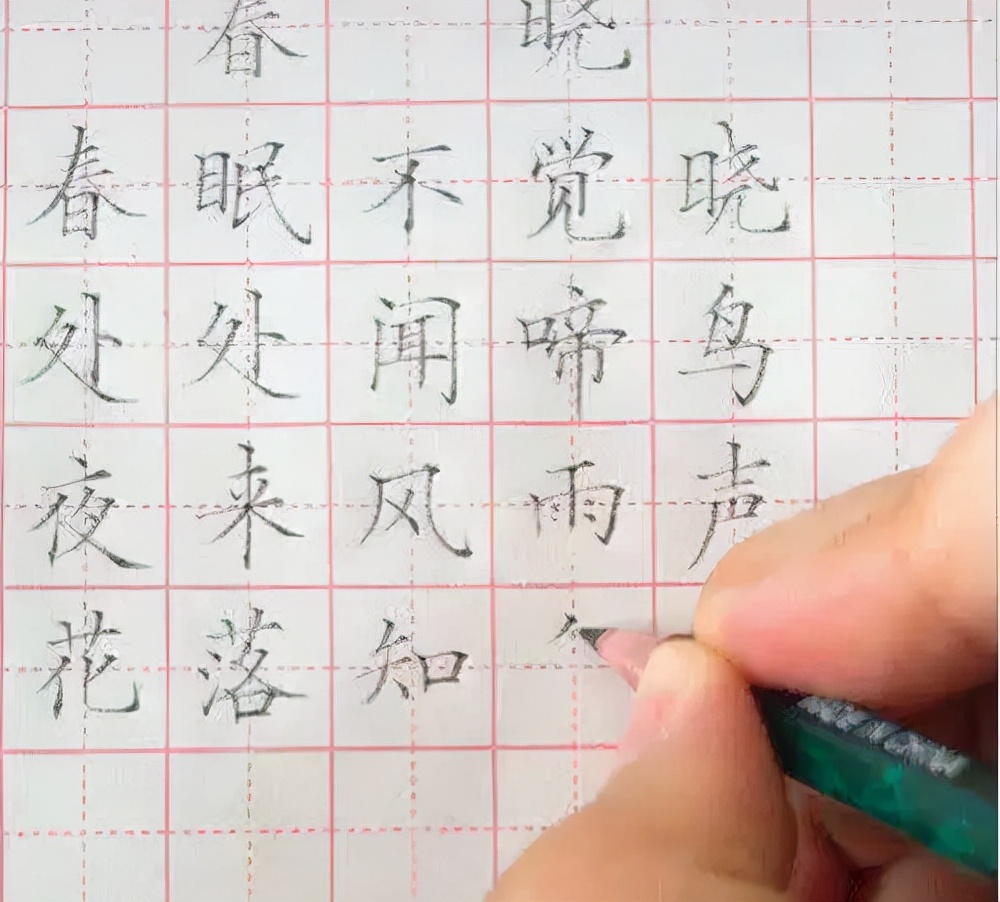 春晓
春眠不觉晓
处处闻啼鸟
夜来风雨声
花落知